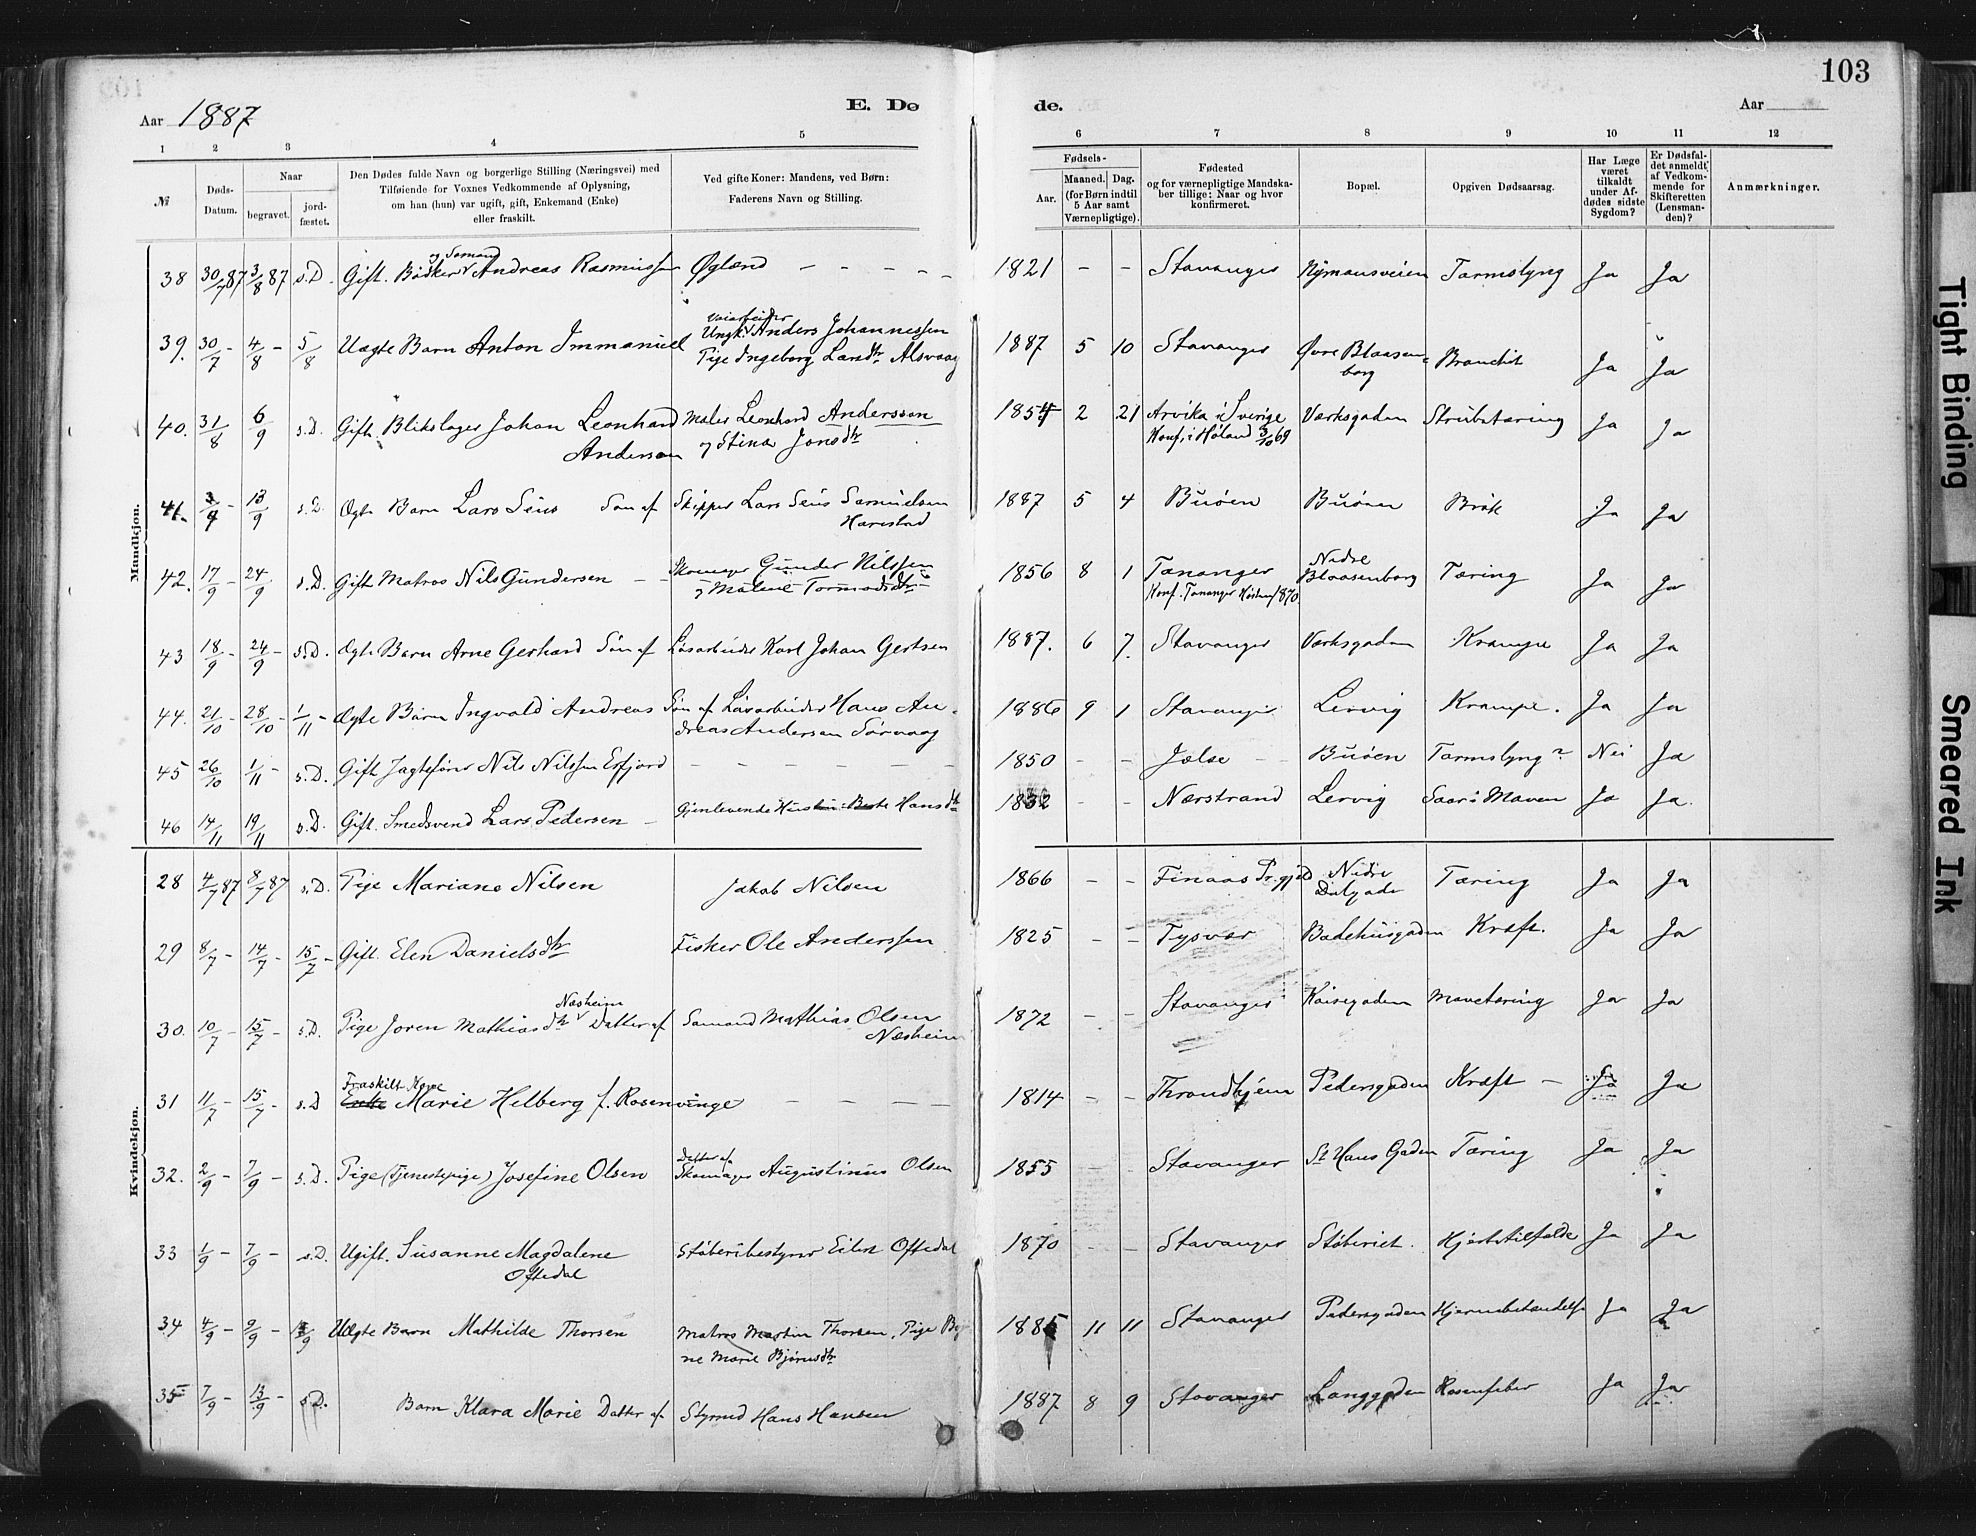 103
Aar 1887 E. Dø de. Aar
1 2 3 4 5 6 7 8 9 10 11 12
№ Døds-Datum. Naar begravet. jord-fæstet. Den Dødes fulde Navn og borgerlige Stilling (Næringsvei) med Tilføiende for Voxnes Vedkommende af Oplysning, om han (hun) var ugift, gift, Enkemand (Enke) eller fraskilt. Ved gifte Koner: Mandens, ved Børn: Faderens Navn og Stilling. Fødsels- Aar. Maaned. Dag. (for Børn indtil 5 Aar samt Værnepligtige). Fødested og for værnepligtige Mandskaber tillige: Naar og hvor konfirmeret. Bopæl. Opgiven Dødsaarsag. Har Læge været tilkaldt under Afdødes sidste Sygdom? Er Dødsfaldet anmeldt af Vedkommende for Skifteretten (Lensmanden)? Anmærkninger.
Mandkjøn.
og Sømand
38 30/7 87 3/8 87 s.D. Gift. Bødker Andreas Rasmussen Øglænd – – – – – 1821 – – Stavanger Nymansveien Tarmslyng Ja Ja
39. 30/7 – 4/8 – 5/8 Uægte Barn Anton Immanuel Ungk. Anders Johannessen 1887 5 10 Stavanger Øvre Blaasenborg Ja Ja
Pige Ingeborg Larsdtr Alsvaag
40. 31/8 6/9 s.D. Gift. Blikslager Johan Leonhard Maler Leonhard Andersson 1854 2 21 Arvika i Sverige Værksgaden Strubetæring Ja Ja
Anderson og Stina Jonsdtr Konf. i Høland 3/10 69
41. 3/9 – 13/9 s.D. Ægte Barn Lars Seus Søn af Skipper Lars Seus Samuelsen 1887 5 4 Buøen Buøen Brok Ja Ja
Harestad
42. 17/9 – 24/9 s.D. Gift Matros Nils Gundersen – – Skomager Gunder Nilssen 1856 8 1 Tananger Nedre Blaasenborg Tæring Ja Ja
og Malene Tormodsdtr Konf. Tananger Høsten 1870
43 18/9 – 24/9 – s.D. Ægte Barn Arne Gerhard Søn af Løsarbeider Karl Johan Gertsen 1887. 6 7. Stavanger Værksgaden Krampe Ja Ja
44. 21/10 – 28/10 – 1/11 – Ægte Barn Ingvald Andreas Søn af Løsarbeider Hans An- 1886 9 1 Stavanger Lervig Krampe. Ja Ja
dreas Andersen Sørvaag
45 26/10 1/11 – s.D. Gift Jagtefører Nils Nilssen Erfjord – – – – – 1850 – – Jælse – Buøen Tarmslyng? Nei Ja
46 14/11 19/11 s.D. Gift. Smedsvend Lars Pedersen – Gjenlevende Hansdtr 1832 – – Nærstrand Lervig Saar i Maven Ja Ja.
Kvindekjøn.
28 4/7 87 8/7 87 s.D. Pige Mariane Nilsen Jakob Nilsen 1866 – – Finaas Pr.gjeld Nedre Dalgade Tæring Ja Ja
29 8/7 – 14/7 – 15/7 – Gift. Elen Danielsdtr Fisker Ole Anderssen 1825 – – Tysvær Badehusgaden Kræft. Ja Ja
Næsheim
30. 10/7 – 15/7 – s.D. Pige Joren Mathiasdtr Datter af Sømand Mathias Olsen 1872 – – Stavanger Kaisegaden Mavetæring Ja Ja
Næsheim
Fraskilt Kone
31 11/7 – 15/7 – s.D Enke Marie Helberg f. Rosenvinge – – – – 1814 – – Throndhjem Pedersgaden Kræft – Ja Ja
Datter af
32. 2/9 – 7/9 – s.D. Pige (Tjenestepige) Josefine Olsen Skomager Augustinus Olsen 1855 – – Stavanger St Hans Gaden Tæring Ja Ja
33 1/9 – 7/9 – s.D. Ugift. Susanne Magdalene Støberibestyrer Eilert Oftedal 1870 – – Stavanger Støberiet. Hjertetilfælde Ja Ja
Oftedal
34 4/9 – 9/9 – Uægte Barn Mathilde Thorsen Matros Martin Thorsen, Pige Ber- 1885 11 11 Stavanger Pedersgaden Hjernebetændelse Ja Ja
ne Marie Bjørnsdtr
35 7/9 – 13/9 – s.D. Barn Klara Marie Datter af Styrmd Hans Hansen 1887 8 9 Stavanger Langgaden Rosenfeber Ja Ja
Tight Binding
Smeared Ink